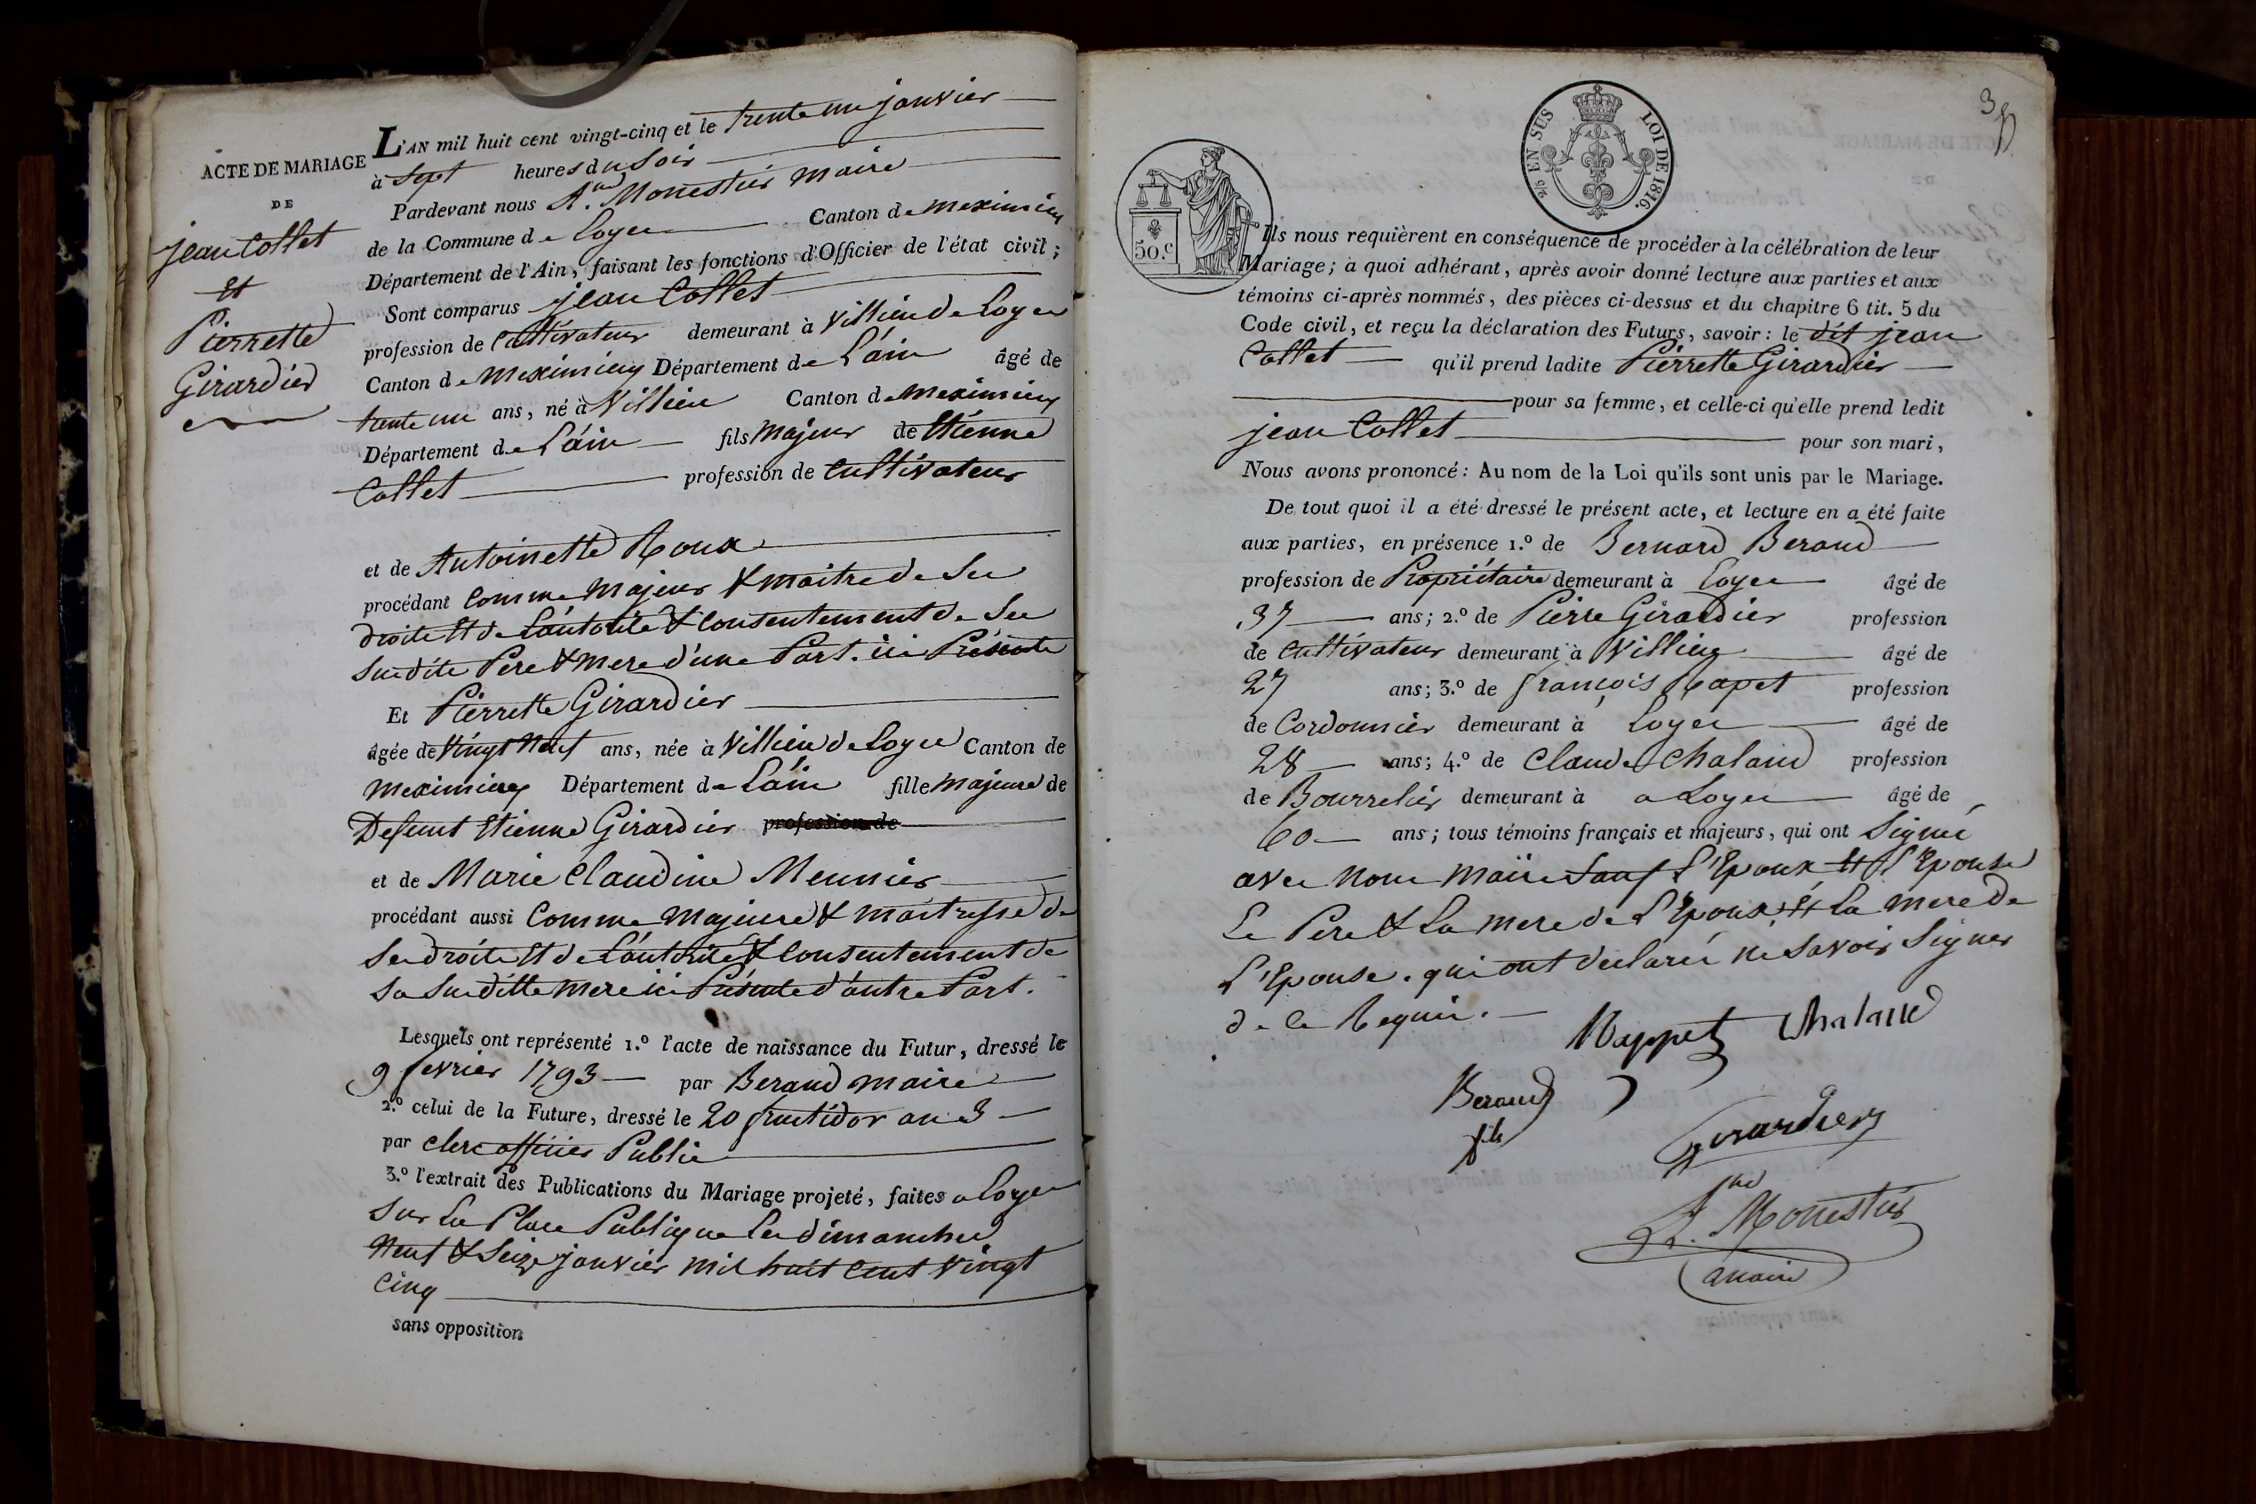 ACTE DE MARIAGE
DE
jean Collet
Et
Pierrette
Girardier
L'AN mil huit cent vingt-cinq et le trente un janvier
à Sept heures du Soir
Pardevant nous A.nd Monestier maire
de la Commune de Loyes Canton de meximieux
Département de l'Ain, faisant les fonctions d'Officier de l'état civil ;
Sont comparus jean Collet
profession de Cultivateur demeurant à Villieu de Loyes
Canton de meximieux Département de L'ain âgé de
trente un ans, né à Villieu Canton de meximieux
Département de L'ain fils majeur de Etienne
Collet profession de Cultivateur
et de Antoinette Roux
procédant Comme majeur & maitre de Ses
droits Et de L'autorité & Consentement de Ses
Susdits Pere & mere d'une Part. ici Présents
Et Pierrette Girardier
âgée de Vingt Neuf ans, née à Villieu de Loyes Canton de
meximieux Département de L'ain fille majeure de
Defunt Etienne Girardier profession de
et de Marie Claudine Meunier
procédant aussi Comme majeure & maitresse de
Ses droits Et de L'autorité & Consentement de
Sa Susditte mere ici Présente d'autre Part.
Lesquels ont représenté 1.º l'acte de naissance du Futur, dressé le
9 fevrier 1793 par Beraud maire
2.º celui de la Future, dressé le 20 fructidor an 3
par Clerc officier Public
3.º l'extrait des Publications du Mariage projeté, faites a Loyes
Sur La Place Publique Les dimanches
Neuf & Seize janvier mil huit Cent Vingt
Cinq
sans opposition
3
25 EN SUS
LOI DE 1816.
50.c
Ils nous requièrent en conséquence de procéder à la célébration de leur
Mariage; à quoi adhérant, après avoir donné lecture aux parties et aux
témoins ci-après nommés, des pièces ci-dessus et du chapitre 6 tit. 5 du
Code civil, et reçu la déclaration des Futurs, savoir : le dit jean
Collet qu'il prend ladite Pierrette Girardier
pour sa femme, et celle-ci qu'elle prend ledit
jean Collet pour son mari,
Nous avons prononcé : Au nom de la Loi qu'ils sont unis par le Mariage.
De tout quoi il a été dressé le présent acte, et lecture en a été faite
aux parties, en présence 1.º de Bernard Beraud
profession de Propriétaire demeurant à Loyes âgé de
37 ans; 2.º de Pierre Girardier profession
de Cultivateur demeurant à Villieu âgé de
27 ans; 3.º de françois Rapet profession
de Cordonnier demeurant à Loyes âgé de
28 ans; 4.º de Claude Chaland profession
de Bourrelier demeurant à a Loyes âgé de
60 ans; tous témoins français et majeurs, qui ont Signé
avec Nous maire Sauf L'Epoux Et L'Epouse
Le Pere & La mere de L'Epoux, Et La mere de
L'Epouse. qui ont declaré ne Savoir Signer
de ce Requis.
Rappet Chaland
Beraud
fils
Girardier
A.nd Monestier
maire